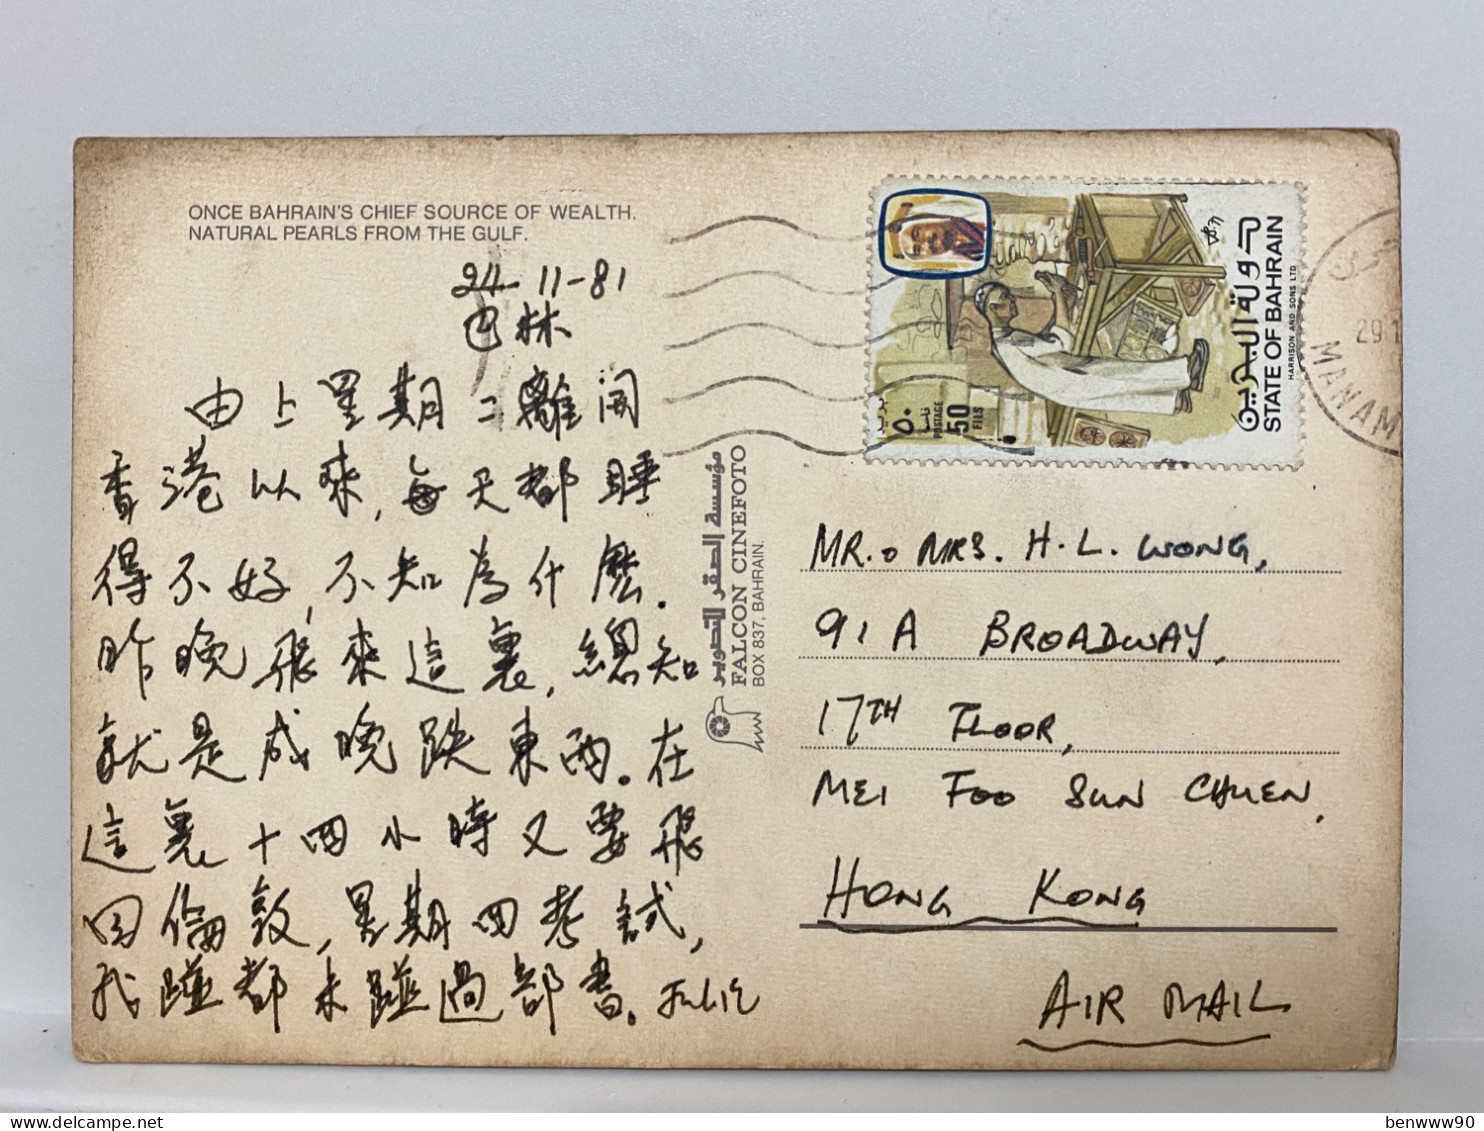 ONCE BAHRAIN'S CHIEF SOURCE OF WEALTH.
NATURAL PEARLS FROM THE GULF.
24-11-81
巴林
由上星期二離開
香港以來,每天都睡
得不好,不知為什麼.
昨晚飛來這裏,總知
就是成晚跌東西。在
這裏十四小時又要飛
回倫敦,星期四考試,
我踫都未踫過部書。Julie
مؤسسة الصقر للتصوير
FALCON CINEFOTO
BOX 837, BAHRAIN.
دولة البحرين
STATE OF BAHRAIN
HARRISON AND SONS LTD
٥٠ فلسا
POSTAGE
50
FILS
بريد
29 1
MANAM
MR. & MRS. H. L. WONG,
91A BROADWAY,
17TH FLOOR,
MEI FOO SUN CHUEN,
HONG KONG
AIR MAIL
benwww90